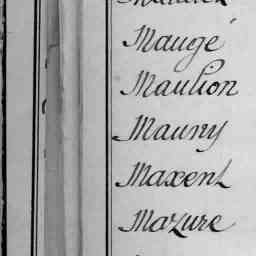 Maugé
Maulion
Mauny
Maxent
Mazure